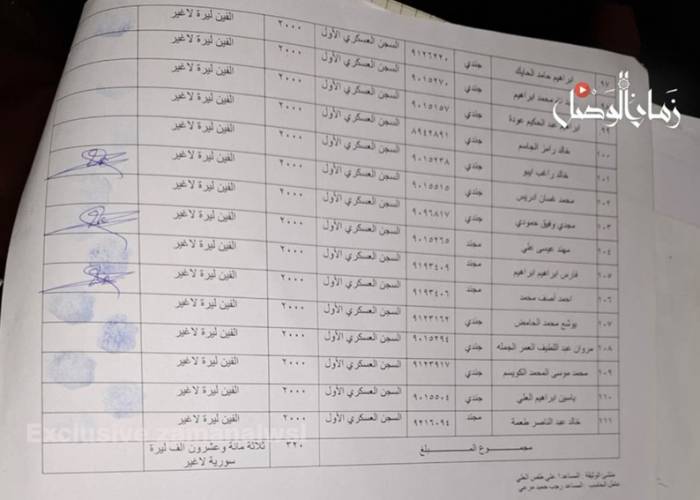 زمان الوصل
٩٧ ابراهيم حامد الحايك جندي ٩١٢٦٢٢٠ السجن العسكري الأول ٢٠٠٠ الفين ليرة لاغير
محمد ابراهيم جندي ٩٠١٥٢٧٠ السجن العسكري الأول ٢٠٠٠ الفين ليرة لاغير
٩٩ عبد الحكيم عودة جندي ٩٠١٥١٥٧ السجن العسكري الأول ٢٠٠٠ الفين ليرة لاغير
١٠٠ خالد رامز الجاسم جندي ٨٩٤٢٨٩١ السجن العسكري الأول ٢٠٠٠ الفين ليرة لاغير
١٠١ خالد راغب ايبو جندي ٩٠١٥٢٣٨ السجن العسكري الأول ٢٠٠٠ الفين ليرة لاغير
١٠٢ محمد غسان ادريس جندي ٩٠١٥٥١٥ السجن العسكري الأول ٢٠٠٠ الفين ليرة لاغير
١٠٣ مجدي وفيق حمودي جندي ٩٠٩٦٨١٧ السجن العسكري الأول ٢٠٠٠ الفين ليرة لاغير
١٠٤ مهند عيسى علي مجند ٩٠١٥٢٦٥ السجن العسكري الأول ٢٠٠٠ الفين ليرة لاغير
١٠٥ فارس ابراهيم ابراهيم مجند ٩١٩٣٤٠٩ السجن العسكري الأول ٢٠٠٠ الفين ليرة لاغير
١٠٦ احمد آصف محمد مجند ٩١٩٣٤٠٦ السجن العسكري الأول ٢٠٠٠ الفين ليرة لاغير
١٠٧ يوشع محمد الحامض جندي ٩١٢٣١٦٢ السجن العسكري الأول ٢٠٠٠ الفين ليرة لاغير
١٠٨ مروان عبد اللطيف العمر الجمله جندي ٩٠١٥٢٩٤ السجن العسكري الأول ٢٠٠٠ الفين ليرة لاغير
١٠٩ محمد موسى المحمد الكويسم جندي ٩١٢٣٩١٧ السجن العسكري الأول ٢٠٠٠ الفين ليرة لاغير
١١٠ ياسين ابراهيم العلي جندي ٩٠١٥٥٠٤ السجن العسكري الأول ٢٠٠٠ الفين ليرة لاغير
١١١ خالد عبد الناصر طعمة مجند ٩٢١٦٠٩٤ السجن العسكري الأول ٢٠٠٠ الفين ليرة لاغير
مجموع المبلغ ٣٢٠ ثلاثة مائة وعشرون الف ليرة
سورية لاغير
Exclusive zamanalwsl
منشئ الوثيقة : المساعد١ علي العلي
المساعد رجب حميد مرعي